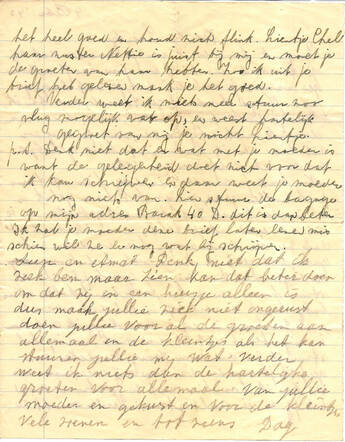 het heel goed en houd mich flink. Lientje Chel
haar zuster Nettie is juist bij mij en moet je
de groeten van haar hebben. zoo ik uit je
brief heb gelezen maak je het goed.
Verder weet ik niets meer stuur voor
vlug mogelijk wat op, en weest hartelijk
gegroet van mij je nicht Lientje.
Denk niet dat er wat met je moeder is
want de gelegenheid doet zich voor dat
ik kan schrijven en daar weet je moeder
nog niets van. hier stuur de bagage
op mijn adres Barak 40 D. dit is dan beter
Ik laat je moeder deze brief later lezen mis
schien wil ze er nog wat bij schrijven.
en Denk niet dat ik
ziek ben maar Lien kan dat beter doen
om dat zij in een huisje alleen is
dus maak jullie niet ongerust
doen jullie vooral de groeten aan
allemaal en de kleintjes als het kan
stuuren jullie mij wat. verder
weet ik niets dan de hartelijke
groeten voor allemaal. Van jullie
moeder en gekust en voor de kleintjes
vele zoenen en tot ziens Dag